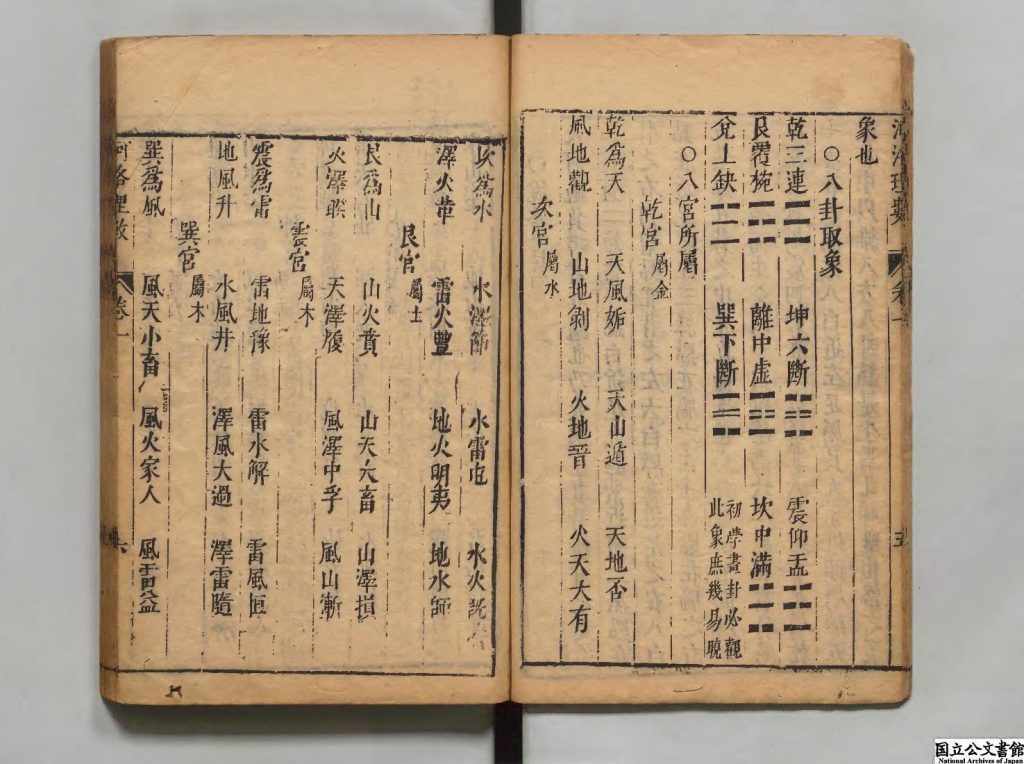 河洛理數 卷一 五
象也
○八卦取象
乾三連 ☰ 坤六斷 ☷ 震仰盂 ☳
艮覆椀 ☶ 離中虛 ☲ 坎中滿 ☵
兌上缺 ☱ 巽下斷 ☴ 初學畫卦必觀
此象庶幾易曉
○八宮所屬
乾宮 屬金
乾爲天 天風姤 天山遁 天地否
風地觀 山地剝 火地晉 火天大有
坎宮 屬水
坎爲水 水澤節 水雷屯 水火既濟
澤火革 雷火豐 地火明夷 地水師
艮宮 屬土
艮爲山 山火賁 山天大畜 山澤損
火澤睽 天澤履 風澤中孚 風山漸
震宮 屬木
震爲雷 雷地豫 雷水解 雷風恒
地風升 水風井 澤風大過 澤雷隨
巽宮 屬木
巽爲風 風天小畜 風火家人 風雷益
河洛理數 卷一 六
国立公文書館
National Archives of Japan